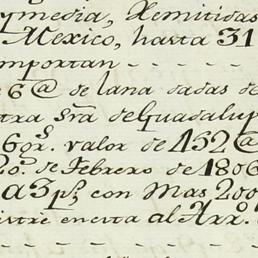 ymedia, Remitidas
Mexico, hasta 31
importan - - - -
6 @ de lana dadas de
tra Sra. de Guadalup
6 grs. valor de 152 @
20. de Febrero de 1806
a 3 ps. con mas 200
istré en esta al Arr.